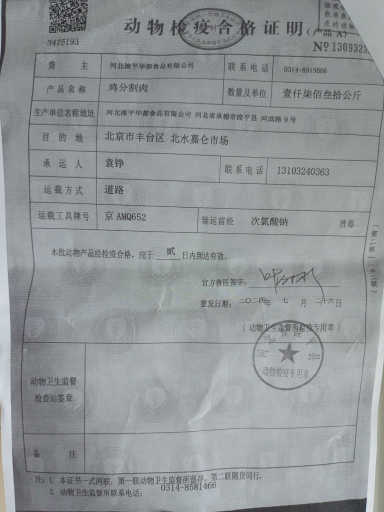 动物检疫合格证明(产品A)
3475193
№1309323
货 主 河北滦平华都食品有限公司 联系电话 0314-8919666
产品名称 鸡分割肉 数量及单位 壹仟柒佰叁拾公斤
生产单位名称地址 河北滦平华都食品有限公司 河北省承德市滦平县 河滨路9号
目的地 北京市丰台区 北水嘉仑市场
承运人 袁铮 联系电话 13103240363
运载方式 道路
运载工具牌号 京AMQ652 装运前经 次氯酸钠 消毒
本批动物产品经检疫合格,应于 贰 日内到达有效。
官方兽医签字:
签发日期: 二〇二四年 七 月 二十六日
(动物卫生监督所检疫专用章)
动物检疫专用章
动物卫生监督
检查站签章
备 注
注:1. 本证书一式两联,第一联动物卫生监督所留存,第二联随货同行。
2. 动物卫生监督所联系电话: 0314-8581466